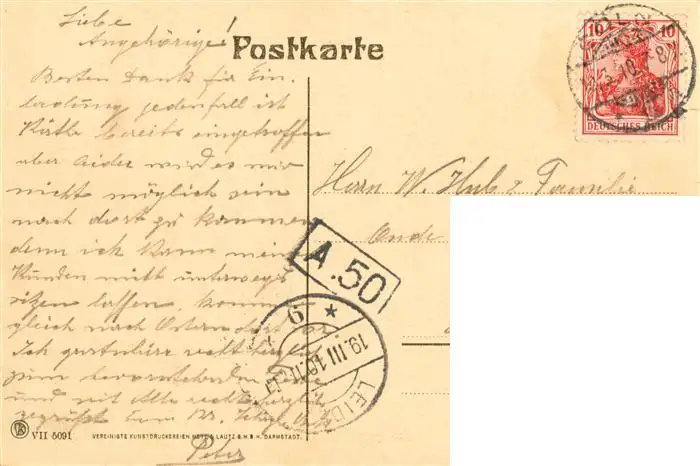 Liebe
Angehörige!
Postkarte
Besten Dank für Ein-
ladung jedenfall ist
Käthe bereits eingetroffen
aber leider wird es mir
nicht möglich sein
nach dort zu kommen
denn ich kann mein
Kunden nicht unterwegs
sitzen lassen, komme
gleich nach Ostern dort
Ich gratuliere recht herzlich
zum bevorstehenden
und mit Alle recht herzlich
gegrüßt von
Peter
10 10
DEUTSCHES REICH
Herrn W. Hub & Familie
Oude
A.50
19.III.10
LEID
VII 5091 VEREINIGTE KUNSTDRUCKEREIEN METZ & LAUTZ G.M.B.H. DARMSTADT.